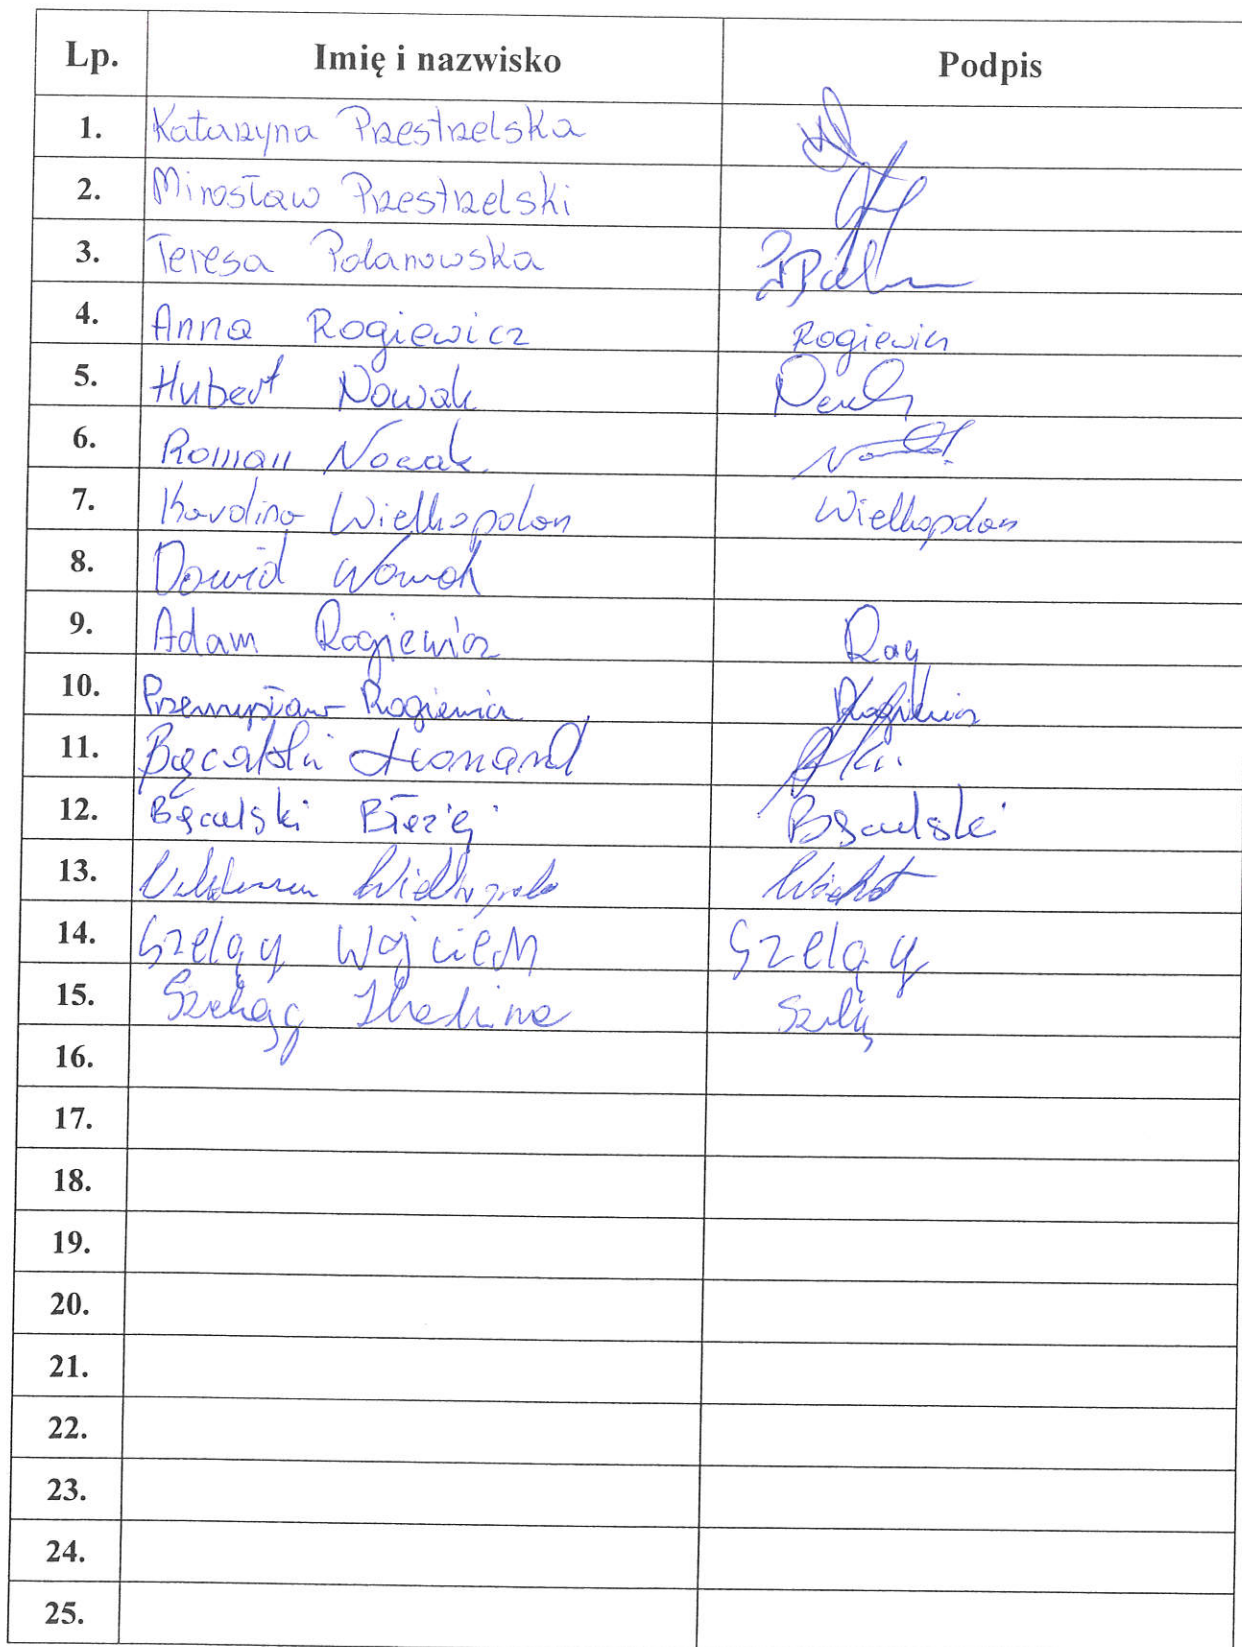 Lp. Imię i nazwisko Podpis
1. Katarzyna Przestrzelska
2. Mirosław Przestrzelski
3. Teresa Polanowska
4. Anna Rogiewicz Rogiewicz
5. Hubert Nowak
6. Roman Nowak
7. Karolina Wielkopolan Wielkopolan
8. Dawid Nowak
9. Adam Rogiewicz Rog
10. Przemysław Rogiewicz Rogiewicz
11. Bącalski
12. Bącalski Błażej Bącalski
13.
14. Szeląg Wojciech Szeląg
15. Szeląg Halina
16.
17.
18.
19.
20.
21.
22.
23.
24.
25.